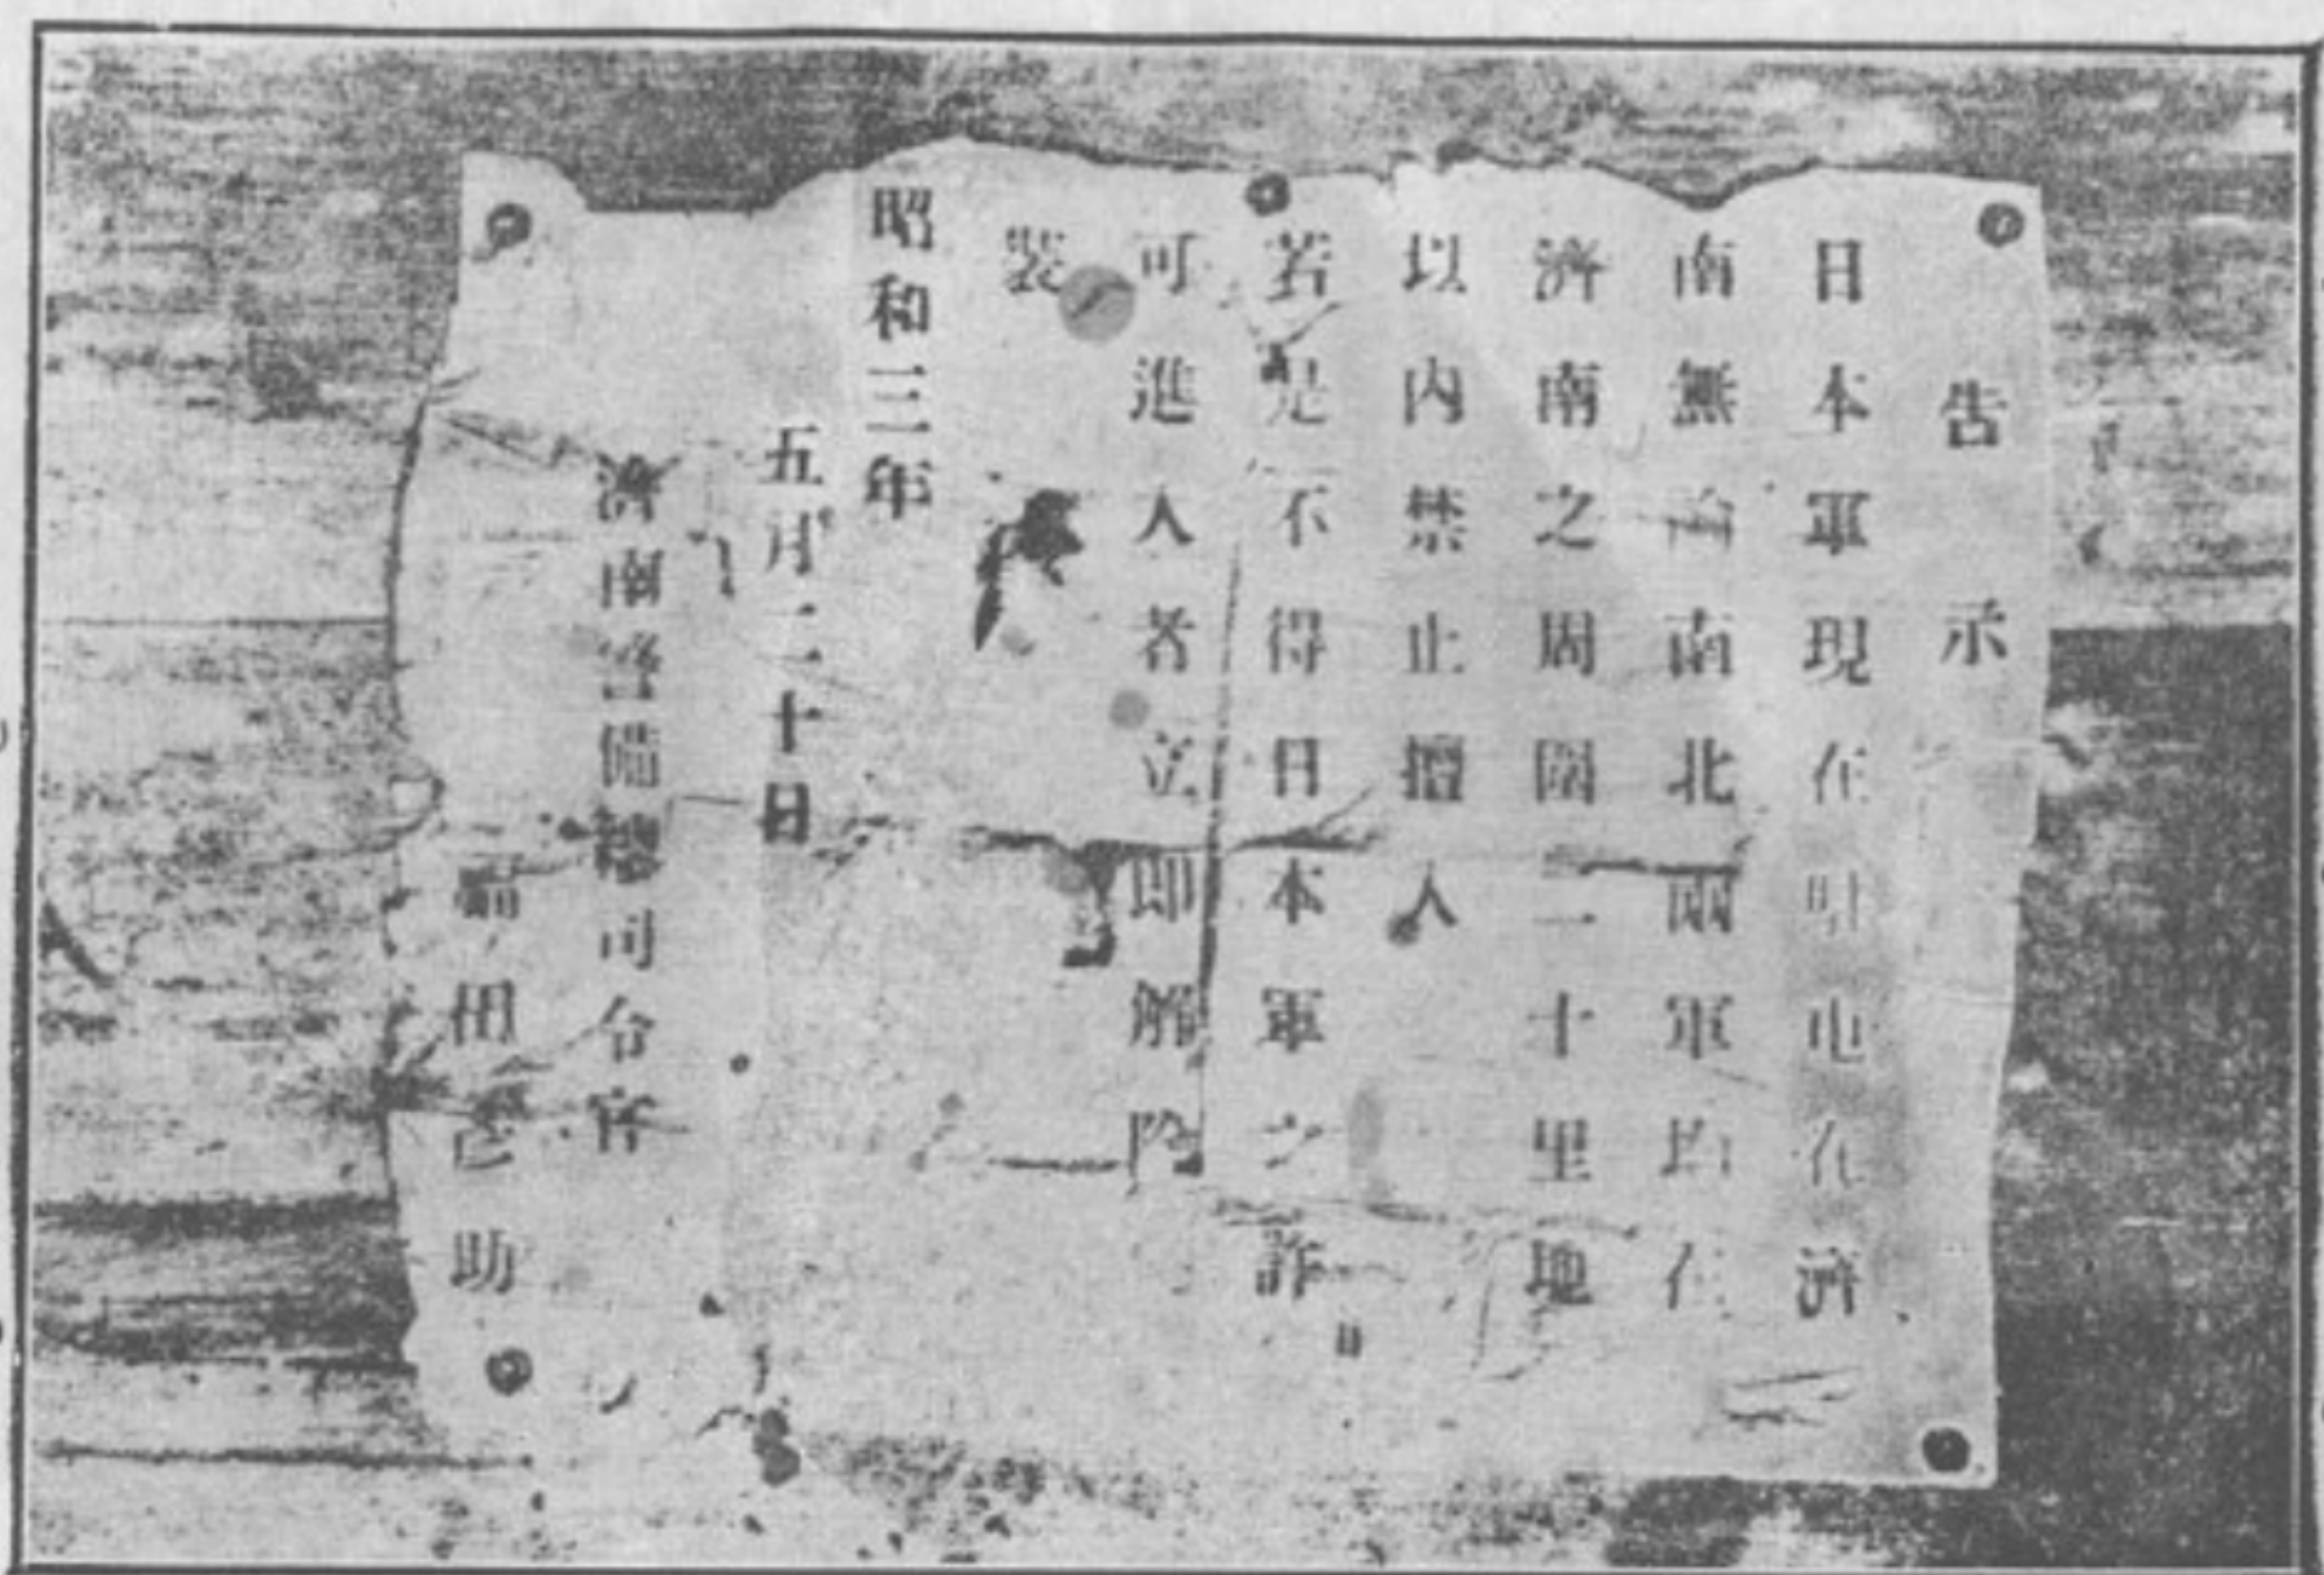 告示
日本軍現在駐屯在濟
南無論南北兩軍均在
濟南之周圍二十里地
以內禁止擅入
若是不得日本軍之許
可進入者立即解除
裝
昭和三年
五月二十日
濟南警備總司令官
福田彥助